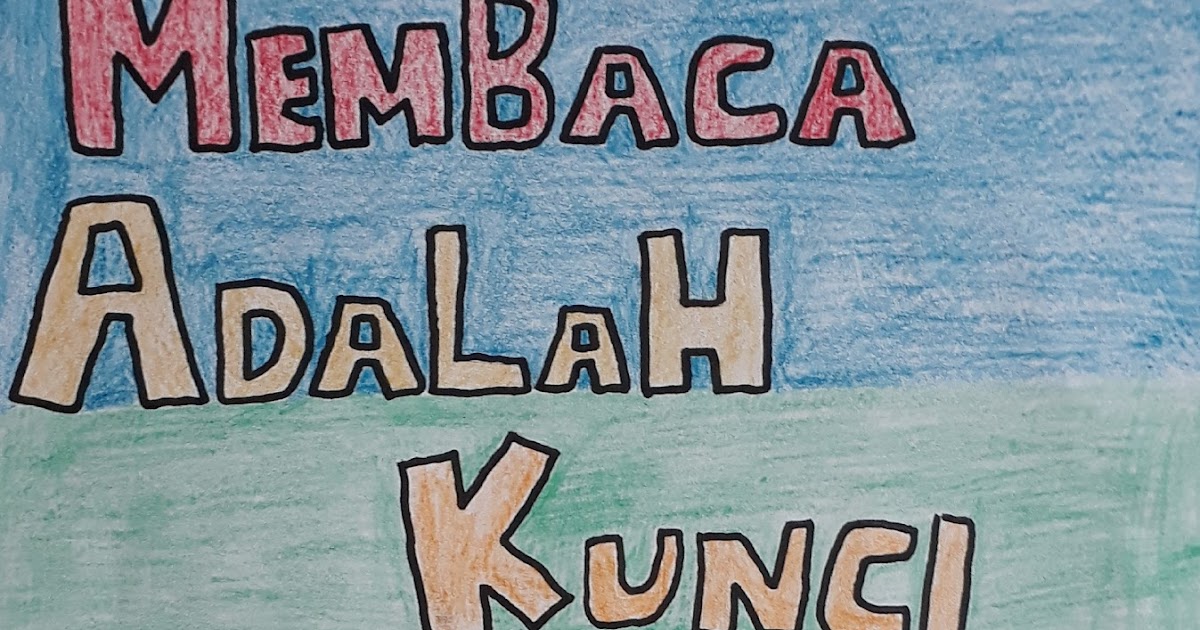 MEMBACA
ADALAH
KUNCI